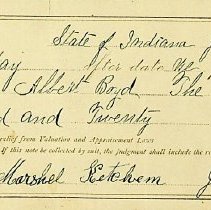 State of Indiana
day after date We
Albert Boyd The
d and Twenty
relief from Valuation and Appraisement Laws
If this note be collected by suit, the judgment shall include the
Marshel Ketchem